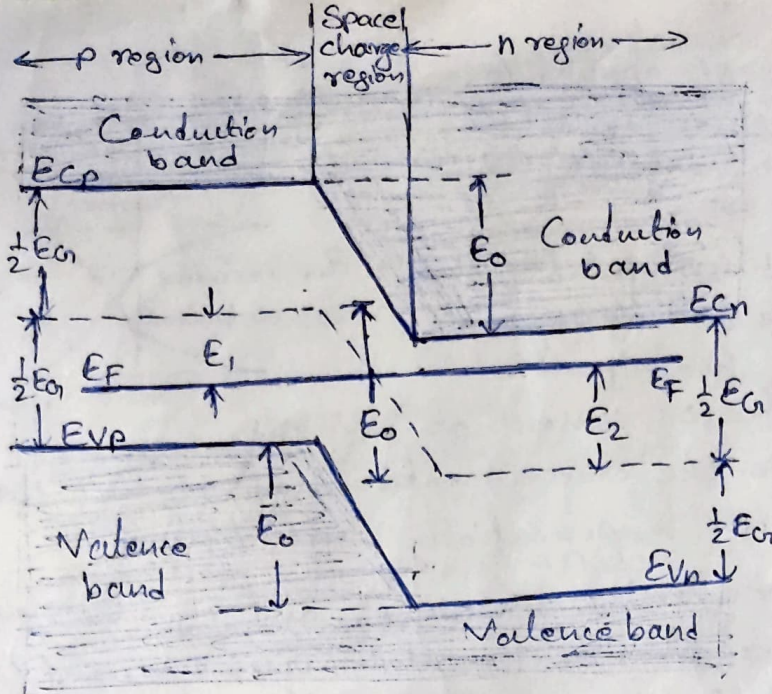 Space
charge
region
p region
n region
Conduction
band
Ecp
1/2 EG
E0
Conduction
band
Ecn
1/2 EG
EF
E1
E0
E2
EF
1/2 EG
Evp
E0
1/2 EG
Valence
band
Evn
Valence band